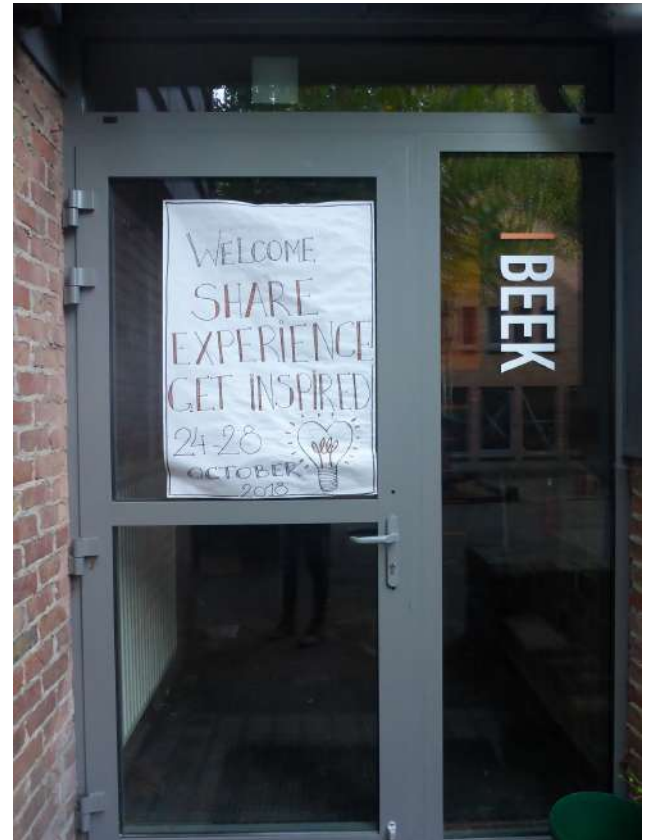 WELCOME
SHARE
EXPERIENCE
GET INSPIRED
24-28
OCTOBER
2018
BEEK